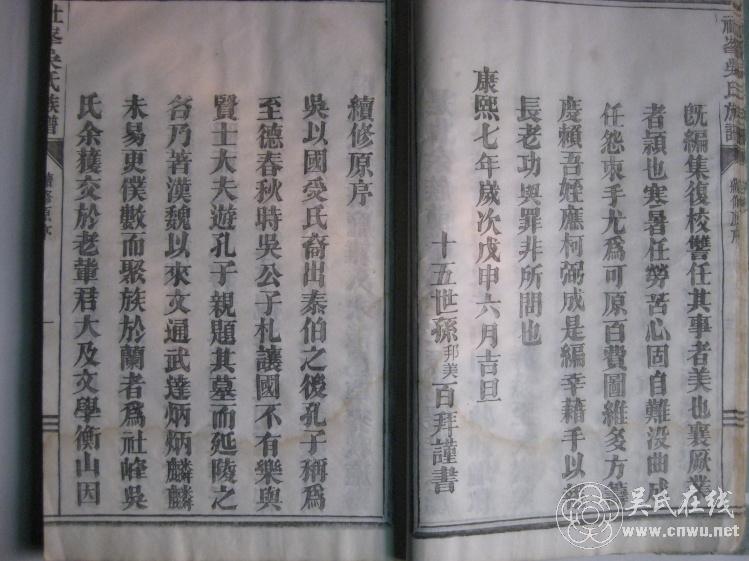 既編集復校讐任其事者美也襄厥
者潁也寒暑任勞苦心固自難没曲
任怨束手尤爲可原百費圖維多方
慶賴吾姪應柯弼成是編幸藉手以
長老功與罪非所問也
康熙七年歲次戊申六月吉旦
十五世孫邦美百拜謹書
社峯吳氏族譜
續修原序
吳以國受氏裔出泰伯之後孔子稱爲
至德春秋時吳公子札讓國不有樂與
賢士大夫遊孔子親題其墓而延陵之
名乃著漢魏以來文通武達炳炳麟麟
未易更僕數而聚族於蘭者爲社峰吳
氏余獲交於老董君大及文學衡山因
社峯吳氏族譜
續修原序
一
吴氏在线
www.cnwu.net